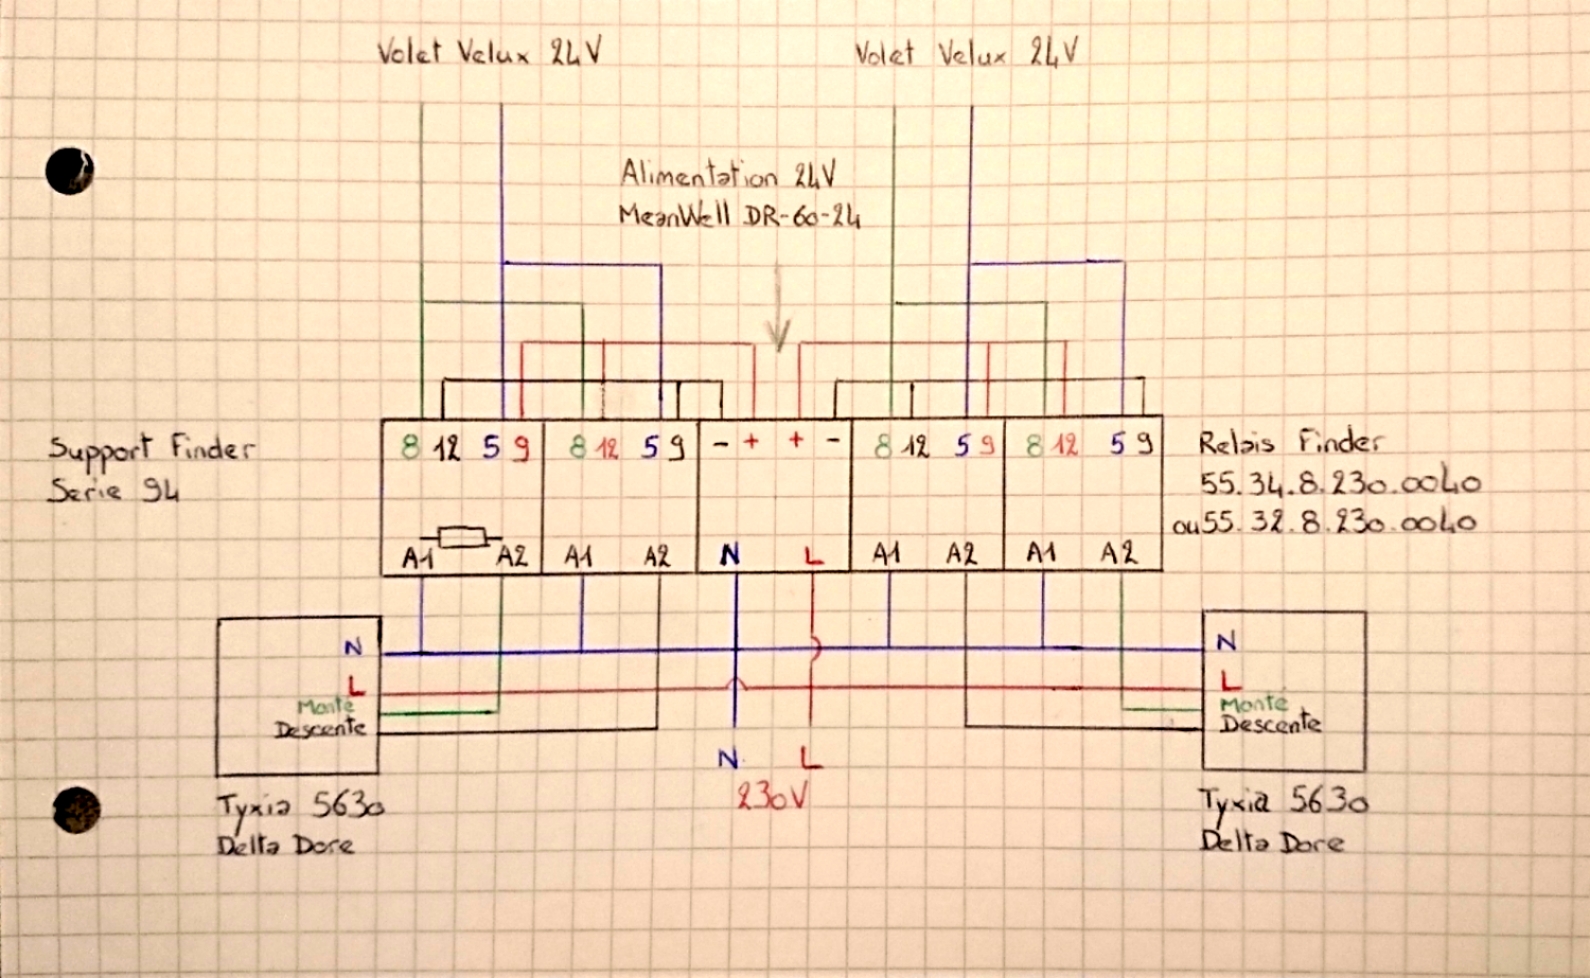 Volet Velux 24V
Volet Velux 24V
Alimentation 24V
MeanWell DR-60-24
Support Finder
Serie 94
8 12 5 9
8 12 5 9
- + + -
8 12 5 9
8 12 5 9
Relais Finder
55.34.8.230.0040
ou 55.32.8.230.0040
A1 A2
A1 A2
N L
A1 A2
A1 A2
N
L
Monté
Descente
N
L
Monté
Descente
N L
230V
Tyxia 5630
Delta Dore
Tyxia 5630
Delta Dore